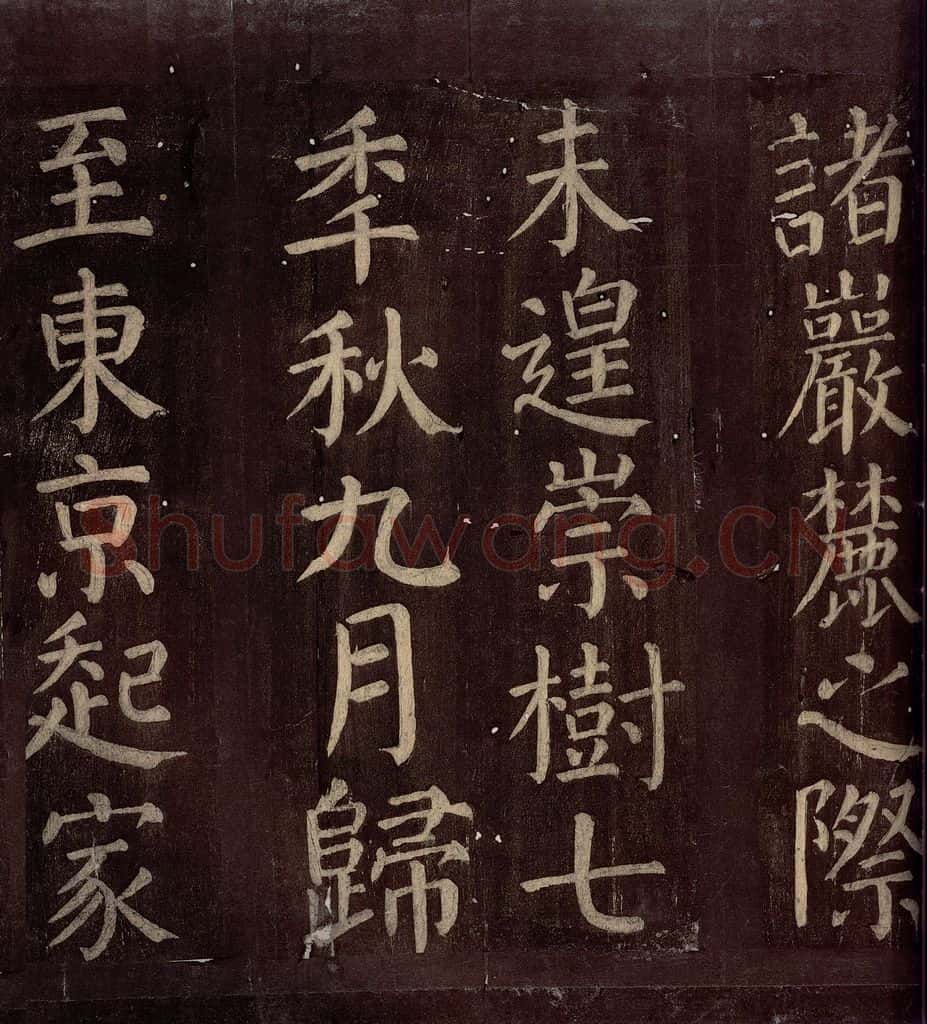 諸巖麓之際
未遑崇樹七
秊秋九月歸
至東京起家
shufawang.CN